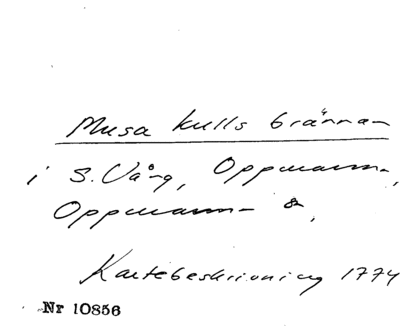 Musa kulls brännan
i S. Vång, Oppmanna,
Oppmanna
Kartebeskrivning 1774
Nr 10856